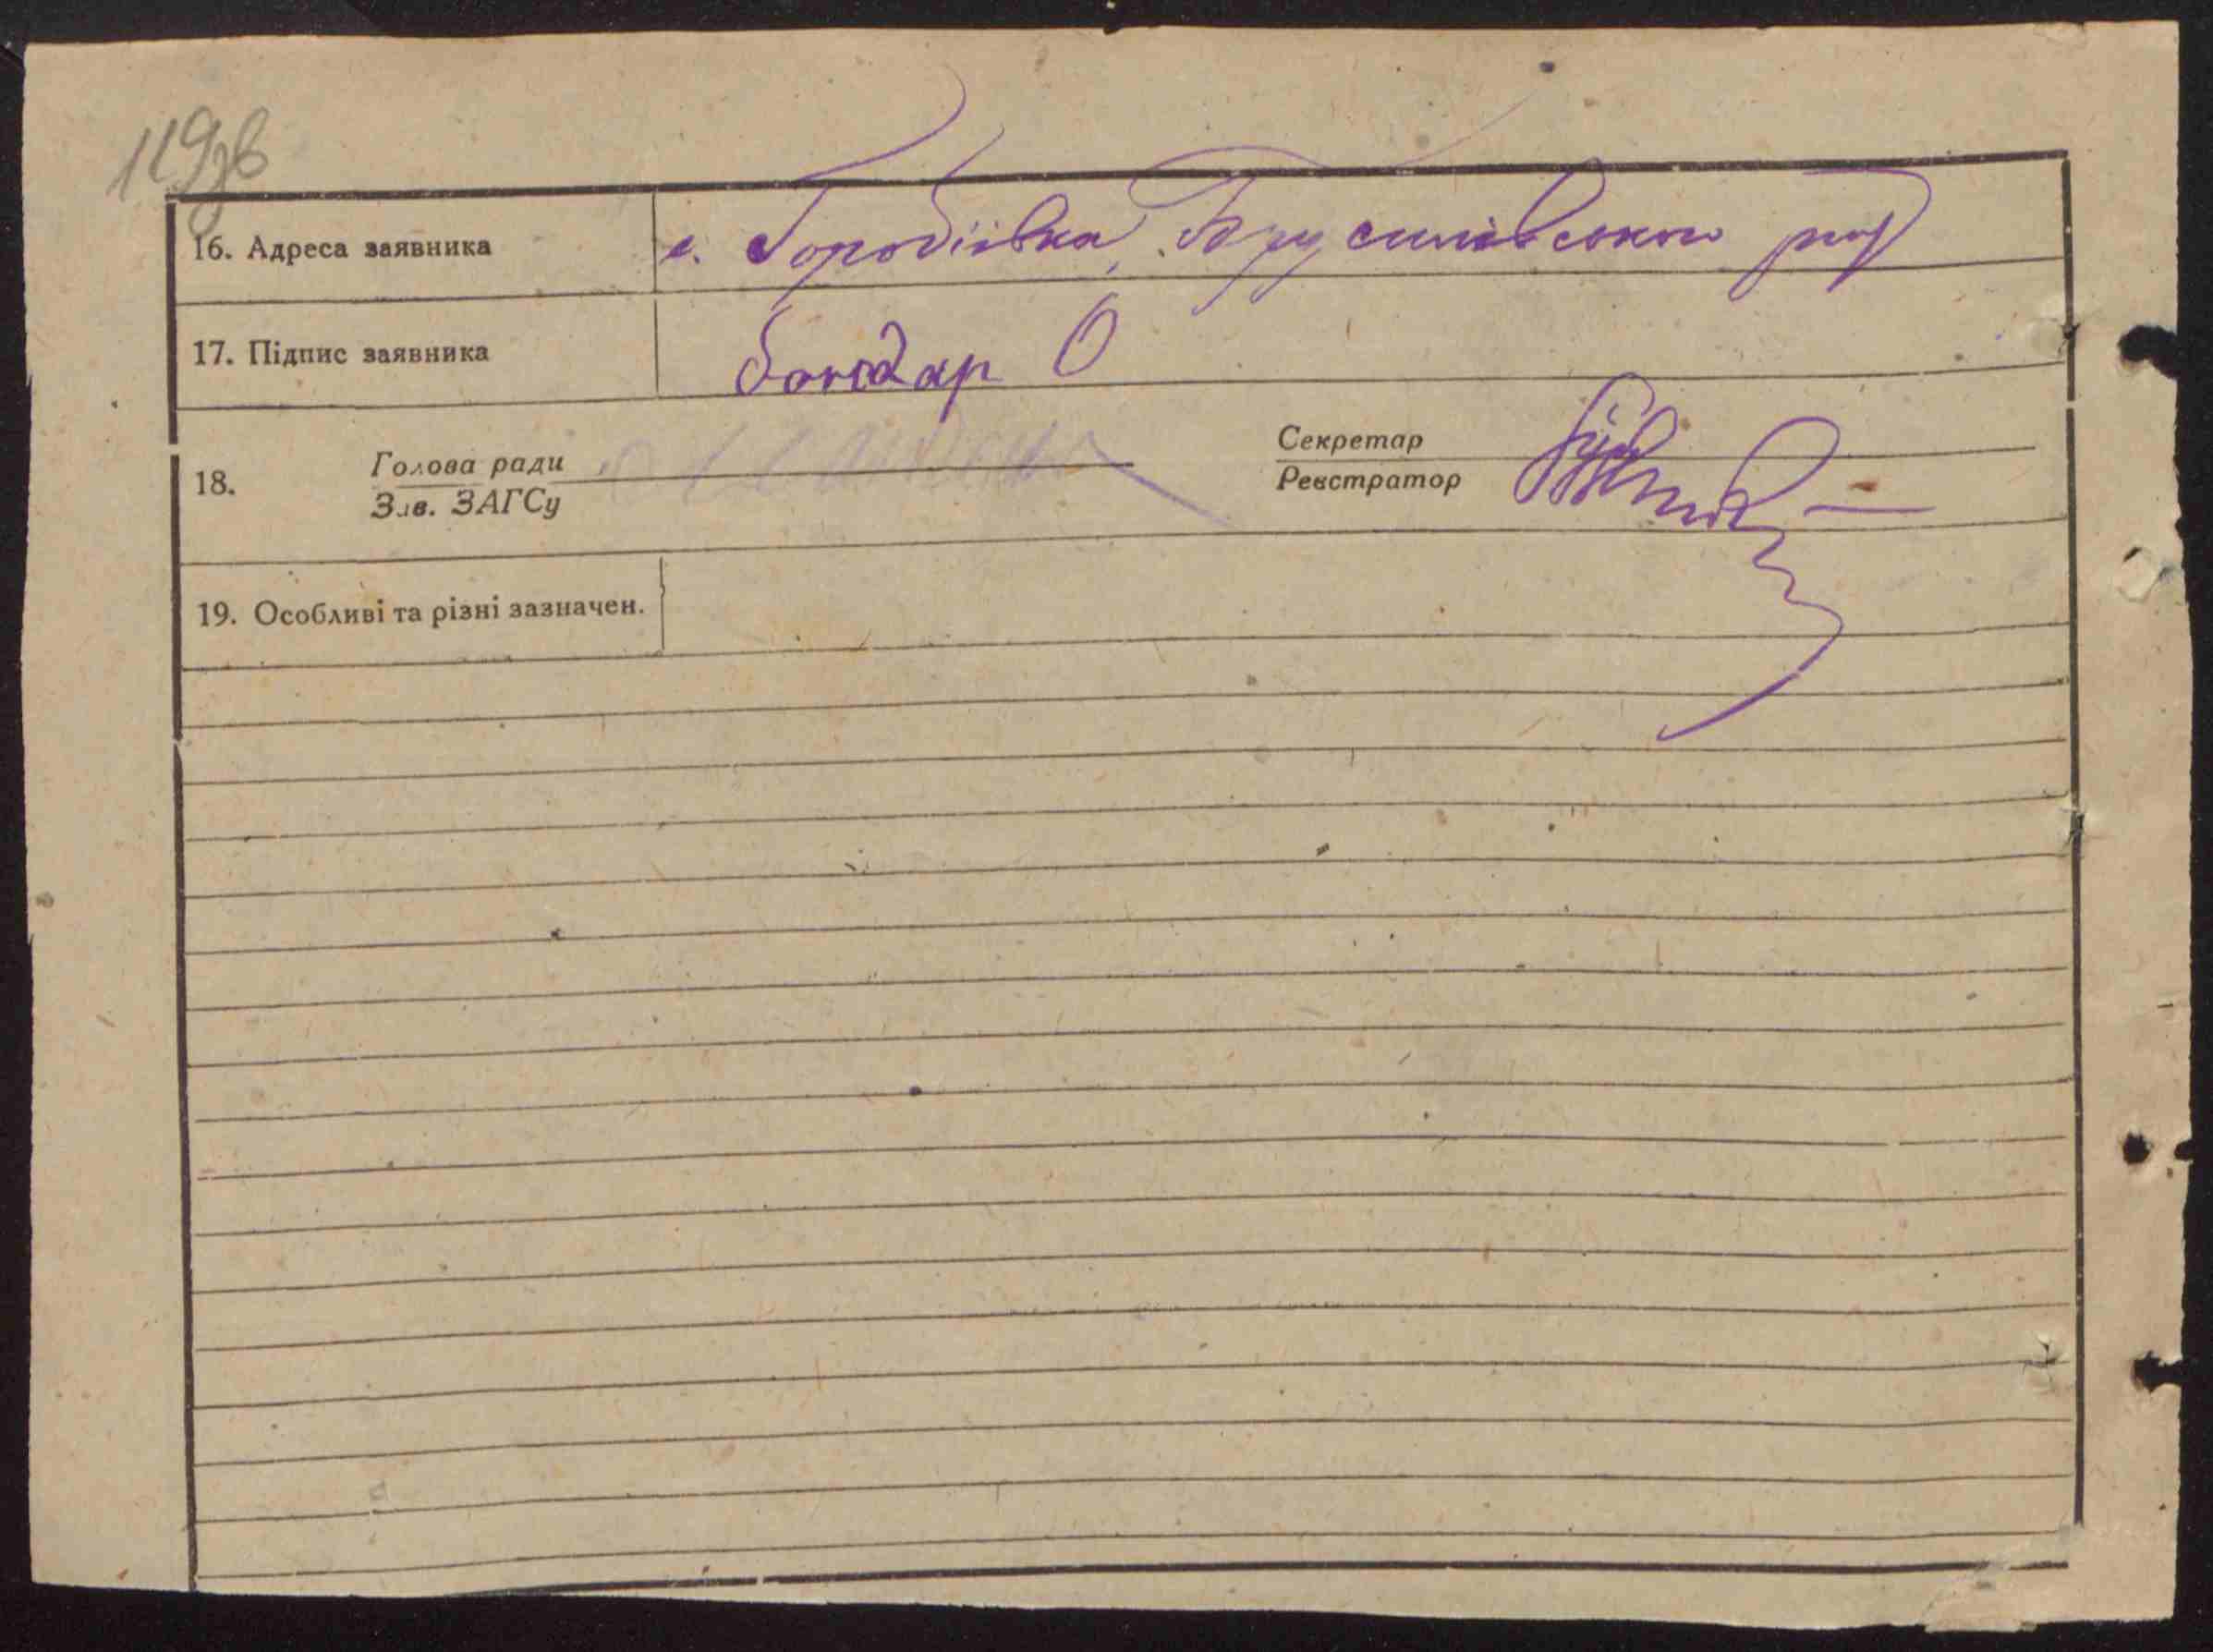 119зв
16. Адреса заявника с. Городіївка, Брусилівського рай
17. Підпис заявника Бондар О
18. Голова ради Секретар
Зав. ЗАГСу Реєстратор
19. Особливі та різні зазначен.